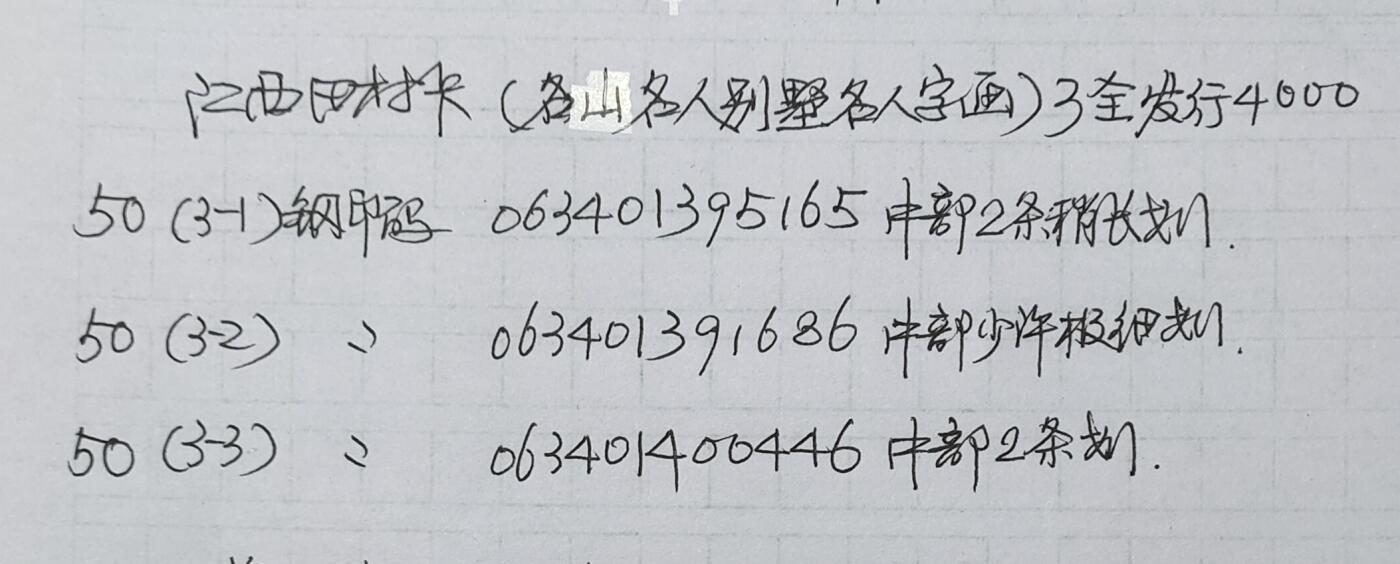 江西田村卡(名山名人别墅名人字画)3全发行4000
50 (3-1)钢印码 063401395165 中部2条稍长划.
50 (3-2) 〃 063401391686 中部少许极细划.
50 (3-3) 〃 063401400446 中部2条划.